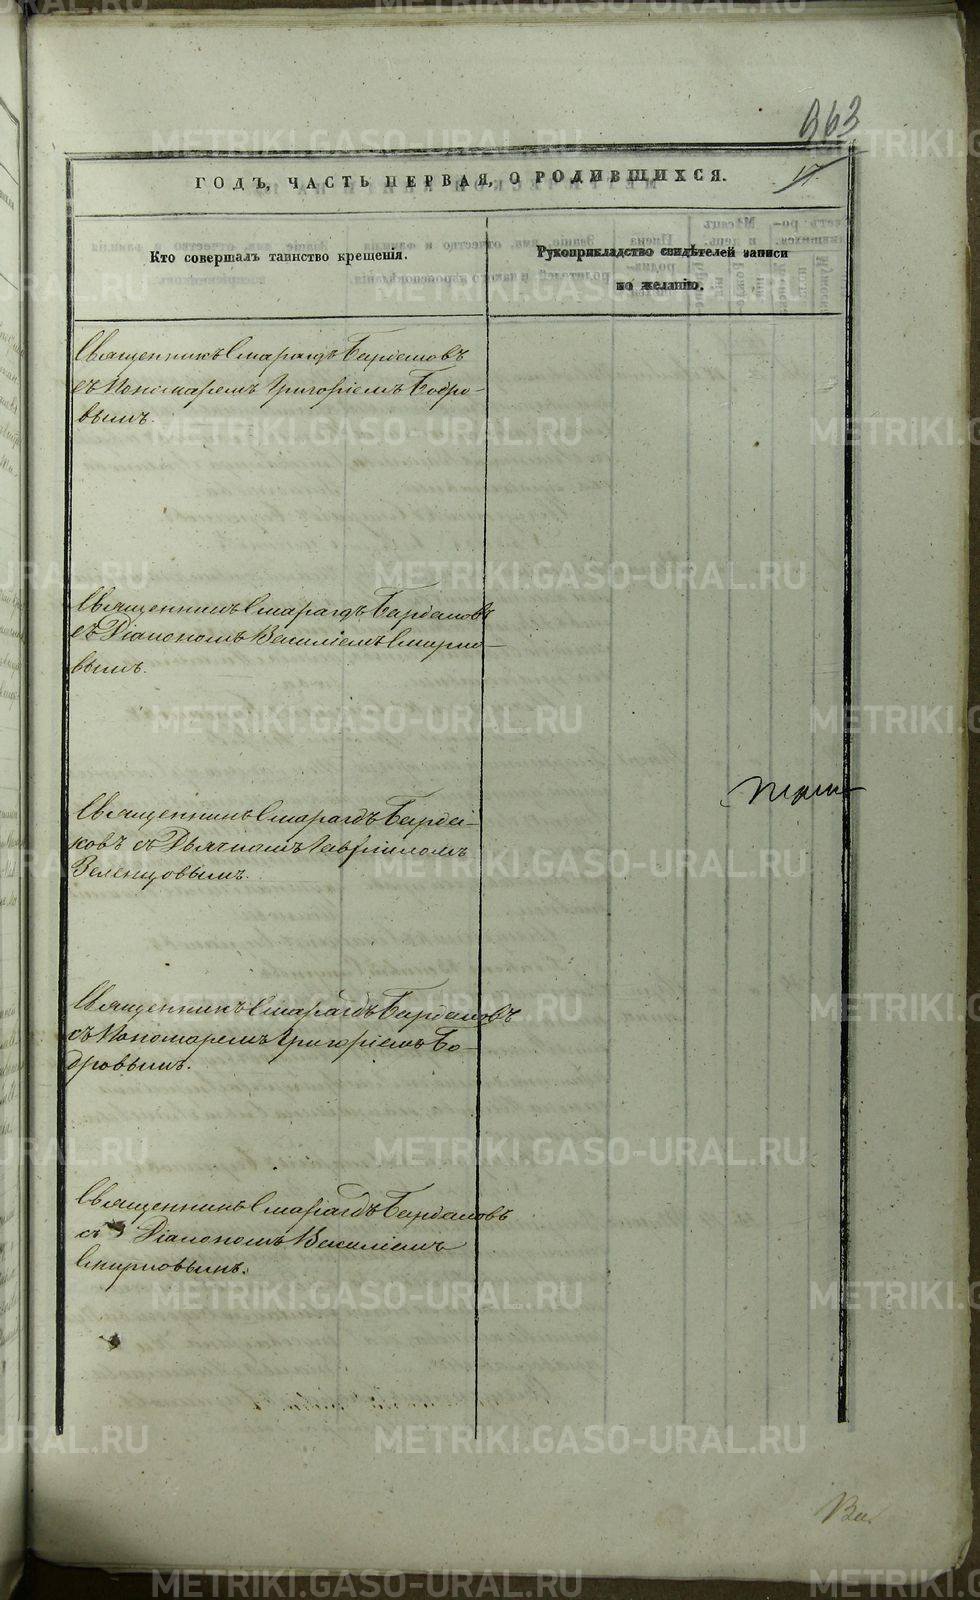 363
17
ГОДЪ, ЧАСТЬ ПЕРВАЯ, О РОДИВШИХСЯ.
Кто совершалъ таинство крещенія.
Рукоприкладство свидѣтелей записи
по желанію.
Священникъ Смарагдъ Бардаковъ
съ Пономаремъ Григоріемъ Бобро-
вымъ.
Священникъ Смарагдъ Бардаковъ
съ Діакономъ Василіемъ Смирно-
вымъ.
Священникъ Смарагдъ Барда-
ковъ съ Дьячкомъ Гавріиломъ
Зеленцовымъ.
Священникъ Смарагдъ Бардаковъ
съ Пономаремъ Григоріемъ Бо-
бровымъ.
Священникъ Смарагдъ Бардаковъ
съ Діакономъ Василіемъ
Смирновымъ.
METRIKI.GASO-URAL.RU